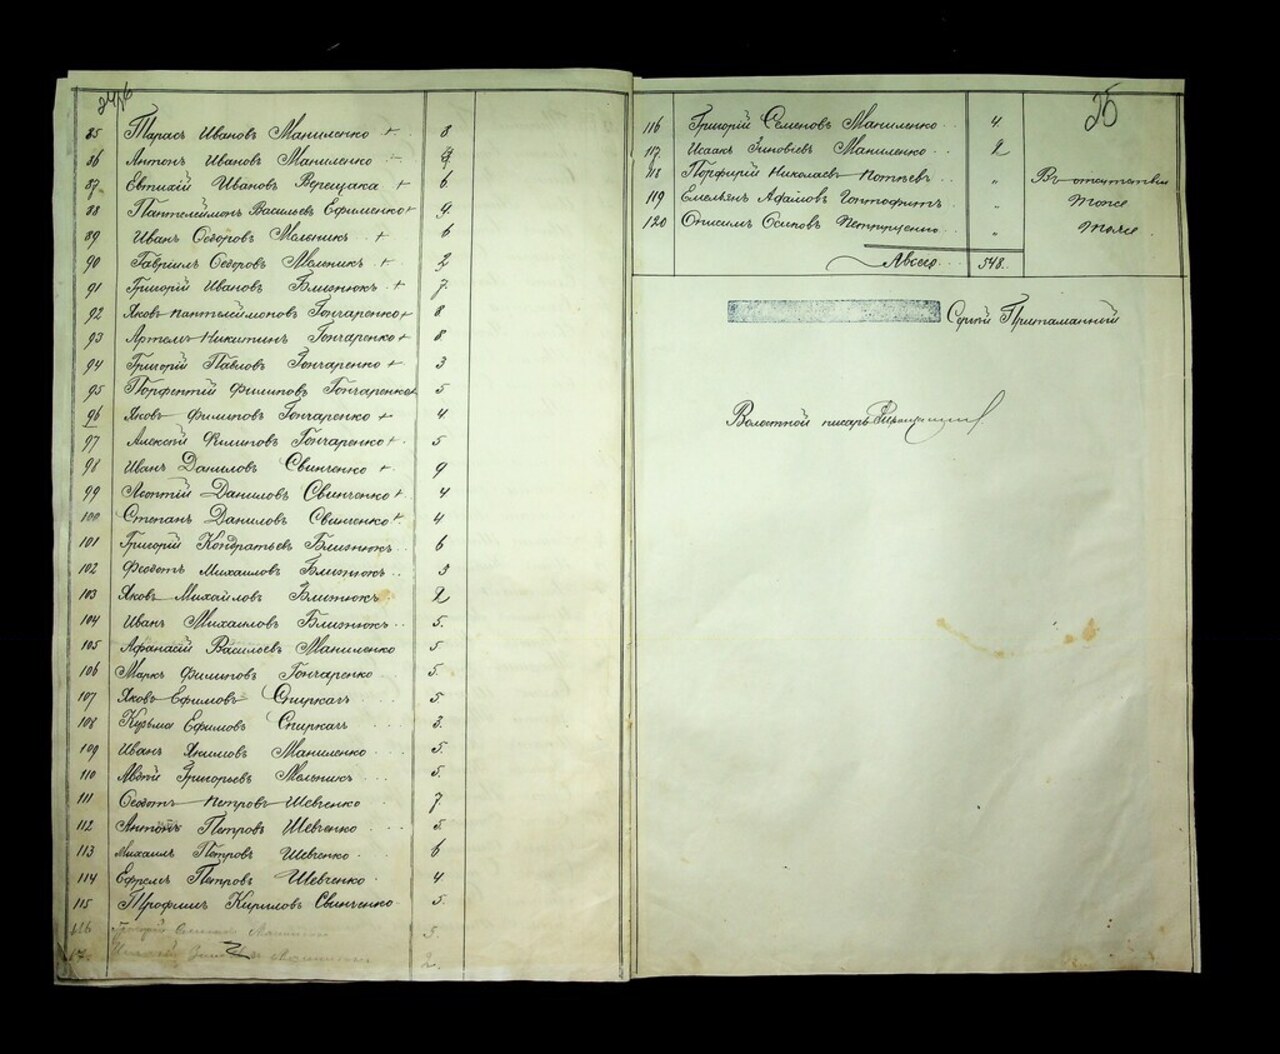 85 Тарасъ Ивановъ Маниленко + 8
86 Антонъ Ивановъ Маниленко
87 Евтихій Ивановъ Верещака + 6.
88 Пантелеймонъ Васильевъ Ефименко + 9.
89 Иванъ Ѳедоровъ Мельникъ + 6
90 Гавріилъ Ѳедоровъ Мельникъ + 2
91 Григорій Ивановъ Близнюкъ + 7.
92 Яковъ Пантелеймоновъ Гончаренко + 8.
93 Артемъ Никитинъ Гончаренко + 8.
94 Григорій Павловъ Гончаренко + 3
95 Парфентій Филиповъ Гончаренко + 5
96 Яковъ Филиповъ Гончаренко + 4
97 Алексѣй Филиповъ Гончаренко + 5
98 Иванъ Даниловъ Свинченко + 9
99 Леонтій Даниловъ Свинченко + 4
100 Степанъ Даниловъ Свинченко + 4
101 Григорій Кондратьевъ Близнюкъ 6
102 Ѳеодотъ Михаиловъ Близнюкъ 3
103 Яковъ Михайловъ Близнюкъ 2
104 Иванъ Михаиловъ Близнюкъ 5.
105 Афанасій Васильевъ Маниленко 5
106 Маркъ Филиповъ Гончаренко 5.
107 Яковъ Ефимовъ Спиркачъ 5.
108 Кузьма Ефимовъ Спиркачъ 3.
109 Иванъ Якимовъ Маниленко 5.
110 Авдѣй Григорьевъ Мельникъ 5.
111 Ѳеодотъ Петровъ Шевченко 7.
112 Антонъ Петровъ Шевченко 5.
113 Михаилъ Петровъ Шевченко 6
114 Ефремъ Петровъ Шевченко 4
115 Трофимъ Кириловъ Свинченко 5.
116 Григорій Семеновъ 5.
2.
25
116 Григорій Семеновъ Маниленко 4
117 Исаакъ Зиновіевъ Маниленко 2
118 Порфирій Николаевъ „ Въ отсутствіи
119 Емельянъ „ Тоже
120 Онисимъ Осиповъ Петрущенко „ Тоже
Авсего 548.
Сергій Притаманной
Волостной писарь